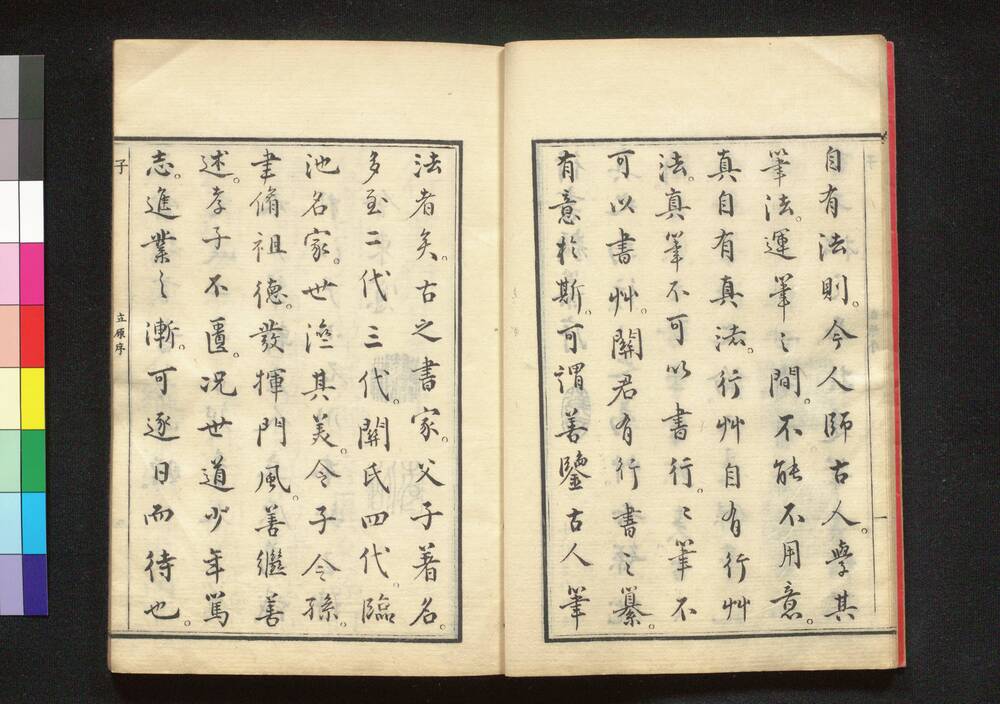 自有法則。今人師古人。學其
筆法。運筆之間。不能不用意。
真自有真法。行艸自有行艸
法。真筆不可以書行。〻筆不
可以書艸。關君有行書之纂。
有意於斯。可謂善鑒古人筆
法者矣。古之書家。父子著名。
多至二代三代。關氏四代。臨
池名家。世濟其美。令子令孫。
聿脩祖德。發揮門風。善繼善
述。孝子不匱。況世道少年篤
志。進業之漸。可逐日而待也。
子
立原序